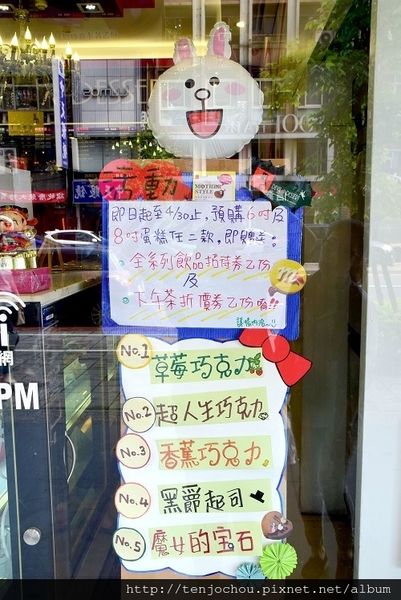 活動
MOTHER'S STYLE
即日起至4/30止，預購6吋及
8吋蛋糕任二款，即贈送：
全系列飲品招待券乙份
及
下午茶折價券乙份唷!!
No.1 草莓巧克力
No.2 超人生巧克力
No.3 香蕉巧克力
No.4 黑爵起司
No.5 魔女的宝石
網
PM
http://tenjochou.pixnet.net/album